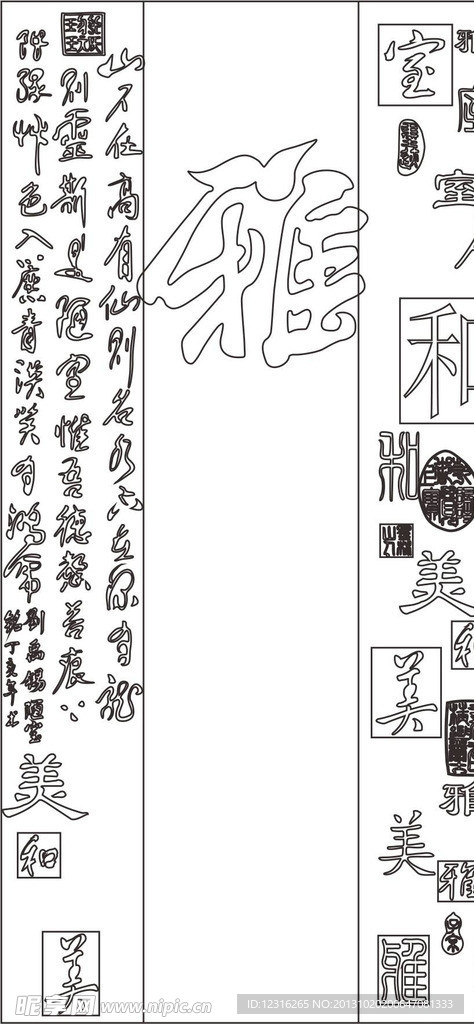 山不在高有仙则名水不在深有龙
则靈斯是陋室惟吾德馨苔痕
阶绿艸色入簾青谈笑有鸿儒
刘禹锡陋室
铭丁亥年书
美
和
美
雅
室
雅
室
室
人
和
和
美
和
美
雅
美
雅
雅
昵享网 www.nipic.cn
ID:12316265 NO:20131020200647081333